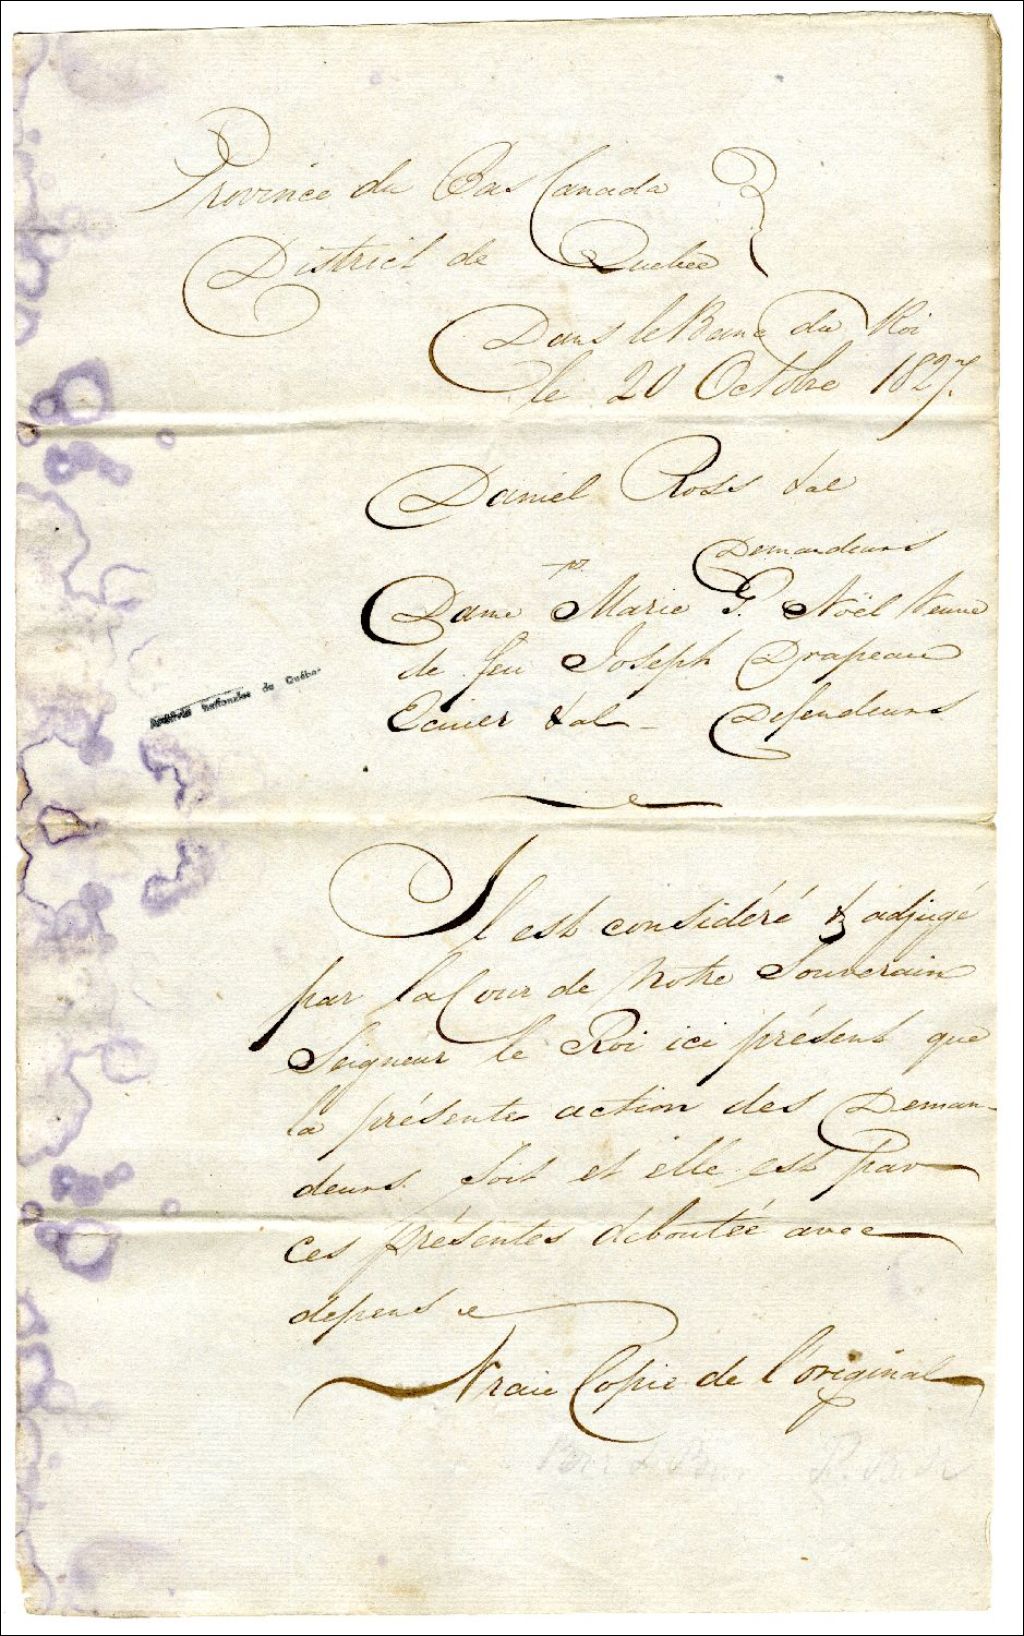 Province du Bas Canada
District de Quebec
Dans le Banc du Roi
le 20 Octobre 1827.
Daniel Ross & al
Demandeurs
vs.
Dame Marie G. Noël Veuve
de feu Joseph Drapeau
Ecuier & al - Defendeurs
Archives Nationales de Québec
Il est considéré & adjugé
par la Cour de Notre Souverain
Seigneur le Roi ici présent que
la présente action des Deman-
deurs soit et elle est par
ces présentes deboutée avec
depens
Vraie Copie de l'original